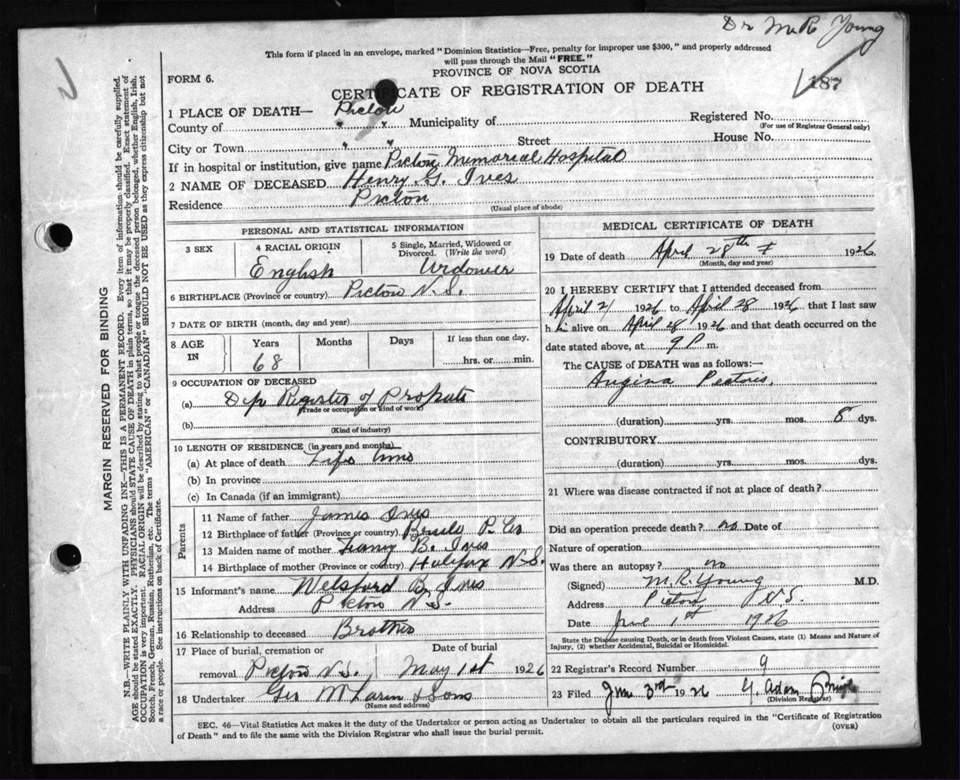 Dr M.R. Young
This form if placed in an envelope, marked "Dominion Statistics—Free, penalty for improper use $300," and properly addressed
will pass through the Mail "FREE."
PROVINCE OF NOVA SCOTIA
FORM 6.
187
CERTIFICATE OF REGISTRATION OF DEATH
1 PLACE OF DEATH— Pictou
County of " " Municipality of Registered No.
(For use of Registrar General only)
City or Town " " Street House No.
If in hospital or institution, give name Pictou Memorial Hospital
2 NAME OF DECEASED Henry G. Ives
Residence Pictou
(Usual place of abode)
PERSONAL AND STATISTICAL INFORMATION
3 SEX 4 RACIAL ORIGIN 5 Single, Married, Widowed or Divorced. (Write the word)
English Widower
6 BIRTHPLACE (Province or country) Pictou N.S.
7 DATE OF BIRTH (month, day and year)
8 AGE IN Years Months Days If less than one day,
68 hrs. or min.
9 OCCUPATION OF DECEASED
(a) Dep Register of Probate
(Trade or occupation or kind of work)
(b)
(Kind of industry)
10 LENGTH OF RESIDENCE (in years and months)
(a) At place of death Life time
(b) In province
(c) In Canada (if an immigrant)
Parents
11 Name of father James Ives
12 Birthplace of father (Province or country) P. Co
13 Maiden name of mother B. Ives
14 Birthplace of mother (Province or country) Halifax N.S.
15 Informant's name Welsford B. Ives
Address Pictou N.S.
16 Relationship to deceased Brother
17 Place of burial, cremation or removal Date of burial
Pictou N.S. May 1st 1926
18 Undertaker Geo & Sons
(Name and address)
MEDICAL CERTIFICATE OF DEATH
19 Date of death April 28th 1926
(Month, day and year)
20 I HEREBY CERTIFY that I attended deceased from
April 21 1926 to April 28 1926 that I last saw
h im alive on April 28 1926 and that death occurred on the
date stated above, at 9 P m.
The CAUSE of DEATH was as follows:—
Angina Pectoris
(duration) yrs. mos. 8 dys.
CONTRIBUTORY
(duration) yrs. mos. dys.
21 Where was disease contracted if not at place of death?
Did an operation precede death? no Date of
Nature of operation
Was there an autopsy? no
(Signed) M.R. Young M.D.
Address Pictou N.S.
Date June 1st 1926
State the Disease causing Death, or in death from Violent Causes, state (1) Means and Nature of
Injury, (2) whether Accidental, Suicidal or Homicidal.
22 Registrar's Record Number 9
23 Filed June 3rd 1926 Adam
(Division Registrar)
SEC. 46—Vital Statistics Act makes it the duty of the Undertaker or person acting as Undertaker to obtain all the particulars required in the "Certificate of Registration
of Death" and to file the same with the Division Registrar who shall issue the burial permit.
(OVER)
MARGIN RESERVED FOR BINDING
N.B.—WRITE PLAINLY WITH UNFADING INK—THIS IS A PERMANENT RECORD. Every item of information should be carefully supplied.
AGE should be stated EXACTLY. PHYSICIANS should STATE CAUSE OF DEATH in plain terms, so that it may be properly classified. Exact statement of
OCCUPATION is very important. RACIAL ORIGIN will be described by stating to what people or tongue the deceased person belonged, whether English, Irish,
Scotch, French, German, Russian, Ruthenian, etc. The terms "AMERICAN" or "CANADIAN" SHOULD NOT BE USED as they express citizenship but not
a race or people. See instructions on back of Certificate.